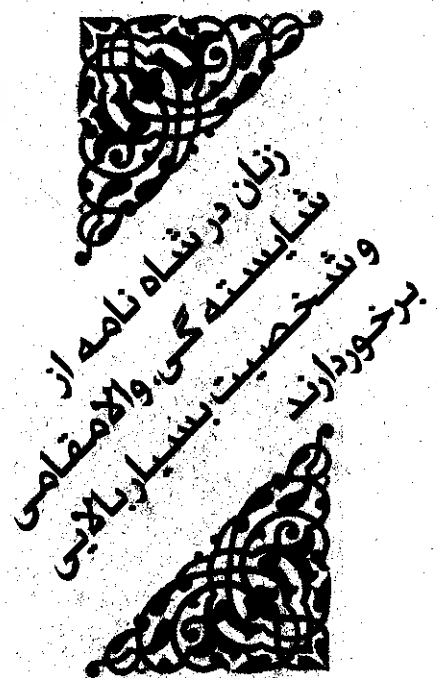 زنان در شاه نامه از
شایسته گی، والامقامی
و شخصیت بسیار بالایی
برخوردارند